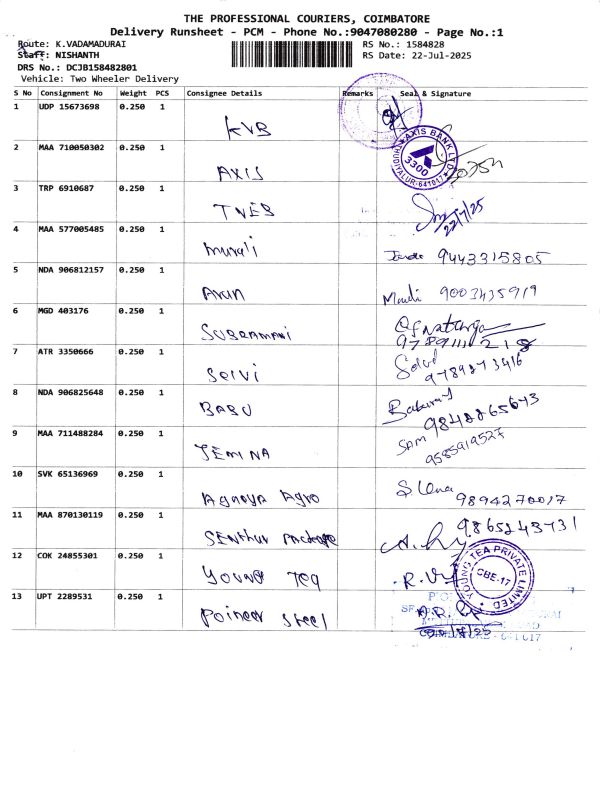 THE PROFESSIONAL COURIERS, COIMBATORE
Delivery Runsheet - PCM - Phone No.:9047080280 - Page No.:1
Route: K.VADAMADURAI
RS No.: 1584828
Staff: NISHANTH
RS Date: 22-Jul-2025
DRS No.: DCJB158482801
Vehicle: Two Wheeler Delivery
S No Consignment No Weight PCS Consignee Details Remarks Seal & Signature
1 UDP 15673698 0.250 1 KVB
2 MAA 710050302 0.250 1 AXIS AXIS BANK LTD 3300 -641017
3 TRP 6910687 0.250 1 TNEB 22/7/25
4 MAA 577005485 0.250 1 murali 9443315805
5 NDA 906812157 0.250 1 Arun 9003435919
6 MGD 403176 0.250 1 SUBRAMANI
7 ATR 3350666 0.250 1 Selvi
8 NDA 906825648 0.250 1 BABU
9 MAA 711488284 0.250 1 JEMINA SAM 9585919527
10 SVK 65136969 0.250 1 Agnaya Agro 9894270017
11 MAA 870130119 0.250 1 Senthur Package 9865243731
12 COK 24855301 0.250 1 Young Tea YOUNG TEA PRIVATE LIMITED CBE-17
13 UPT 2289531 0.250 1 Poineer Steel